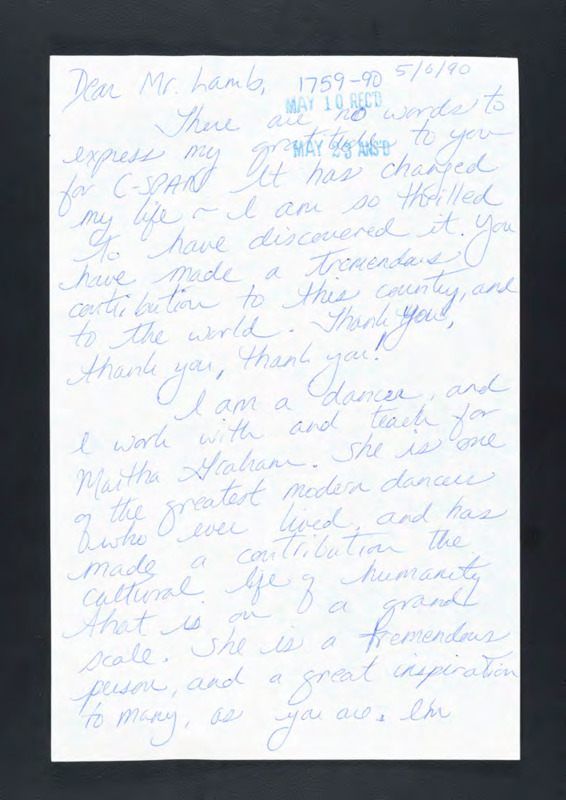 Dear Mr. Lamb, 1759-90 5/6/90
MAY 10 REC'D
There are no words to
express my gratitude to you
MAY 23 ANS'D
for C-SPAN It has changed
my life ~ I am so thrilled
to have discovered it. You
have made a tremendous
contribution to this country, and
to the world. Thank You,
thank you, thank you!
I am a dancer, and
I work with and teach for
Martha Graham. She is one
of the greatest modern dancers
who ever lived, and has
made a contribution the
cultural life of humanity
that is on a grand
scale. She is a tremendous
person, and a great inspiration
to many, as you are. I'm